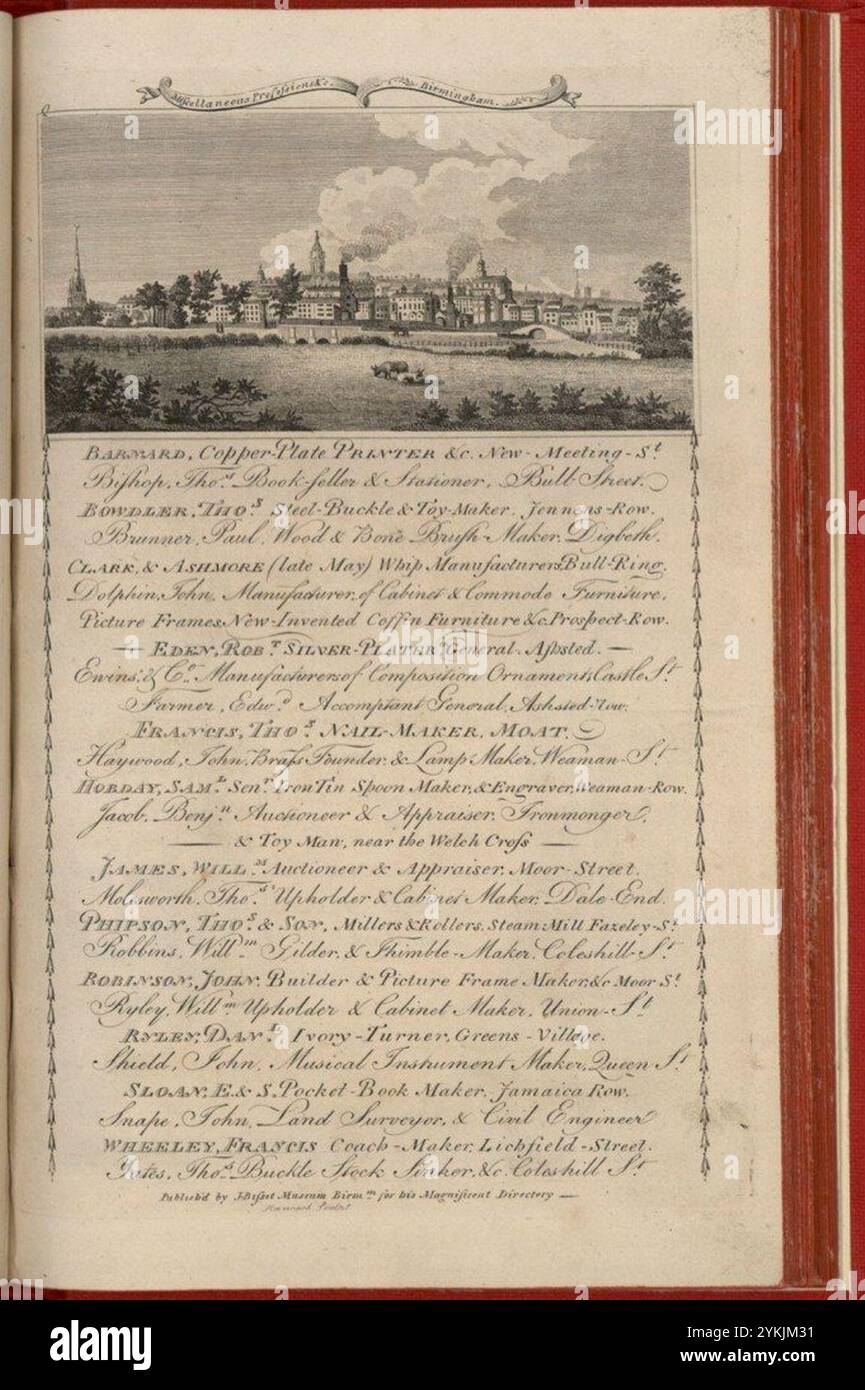 Miscellaneous Professions &c. Birmingham.
BARNARD, Copper-Plate PRINTER &c. New-Meeting-St.
Bishop, Thos. Book-seller & Stationer, Bull Street.
BOWDLER, THOS. Steel-Buckle & Toy-Maker, Jennens-Row.
Brunner, Paul, Wood & Bone Brush-Maker, Digbeth.
CLARK, & ASHMORE (late May) Whip Manufacturers, Bull-Ring.
Dolphin, John, Manufacturer, of Cabinet & Commode Furniture,
Picture Frames, New-Invented Coffn Furniture &c. Prospect-Row.
— EDEN, ROBT. SILVER-PLATER General, Ashsted. —
Ewins, & Co. Manufacturers of Composition Ornaments, Castle St.
Farmer, Edwd. Accomptant General, Ashsted-Row.
FRANCIS, THOS. NAIL-MAKER, MOAT.
Haywood, John, Brass Founder & Lamp Maker, Weaman-St.
HOBDAY, SAML. Senr. Iron Tin Spoon Maker, & Engraver, Weaman-Row.
Jacob, Benjn. Auctioneer & Appraiser, Ironmonger,
— & Toy Man, near the Welch Cross —
JAMES, WILLM. Auctioneer & Appraiser, Moor-Street.
Molesworth, Thos. Upholder & Cabinet Maker, Dale-End.
PHIPSON, THOS. & SON, Millers & Rollers, Steam Mill Fazeley-St.
Robbins, Willm. Gilder, & Thimble-Maker, Coleshill-St.
ROBINSON, JOHN, Builder & Picture Frame Maker, &c Moor St.
Ryley, Willm. Upholder & Cabinet Maker, Union-St.
RYLEY, DANL. Ivory-Turner, Greens-Village.
Shield, John, Musical Instrument Maker, Queen St.
SLOAN, E. & S. Pocket-Book Maker, Jamaica Row.
Snape, John, Land Surveyor, & Civil Engineer
WHEELEY, FRANCIS Coach-Maker, Lichfield-Street.
Yates, Thos. Buckle Stock Sinker, &c. Coleshill St.
Publish'd by J. Bisset Museum Birmm. for his Magnificent Directory —
Hancock Sculpt
alamy
Image ID: 2YKJM31
www.alamy.com